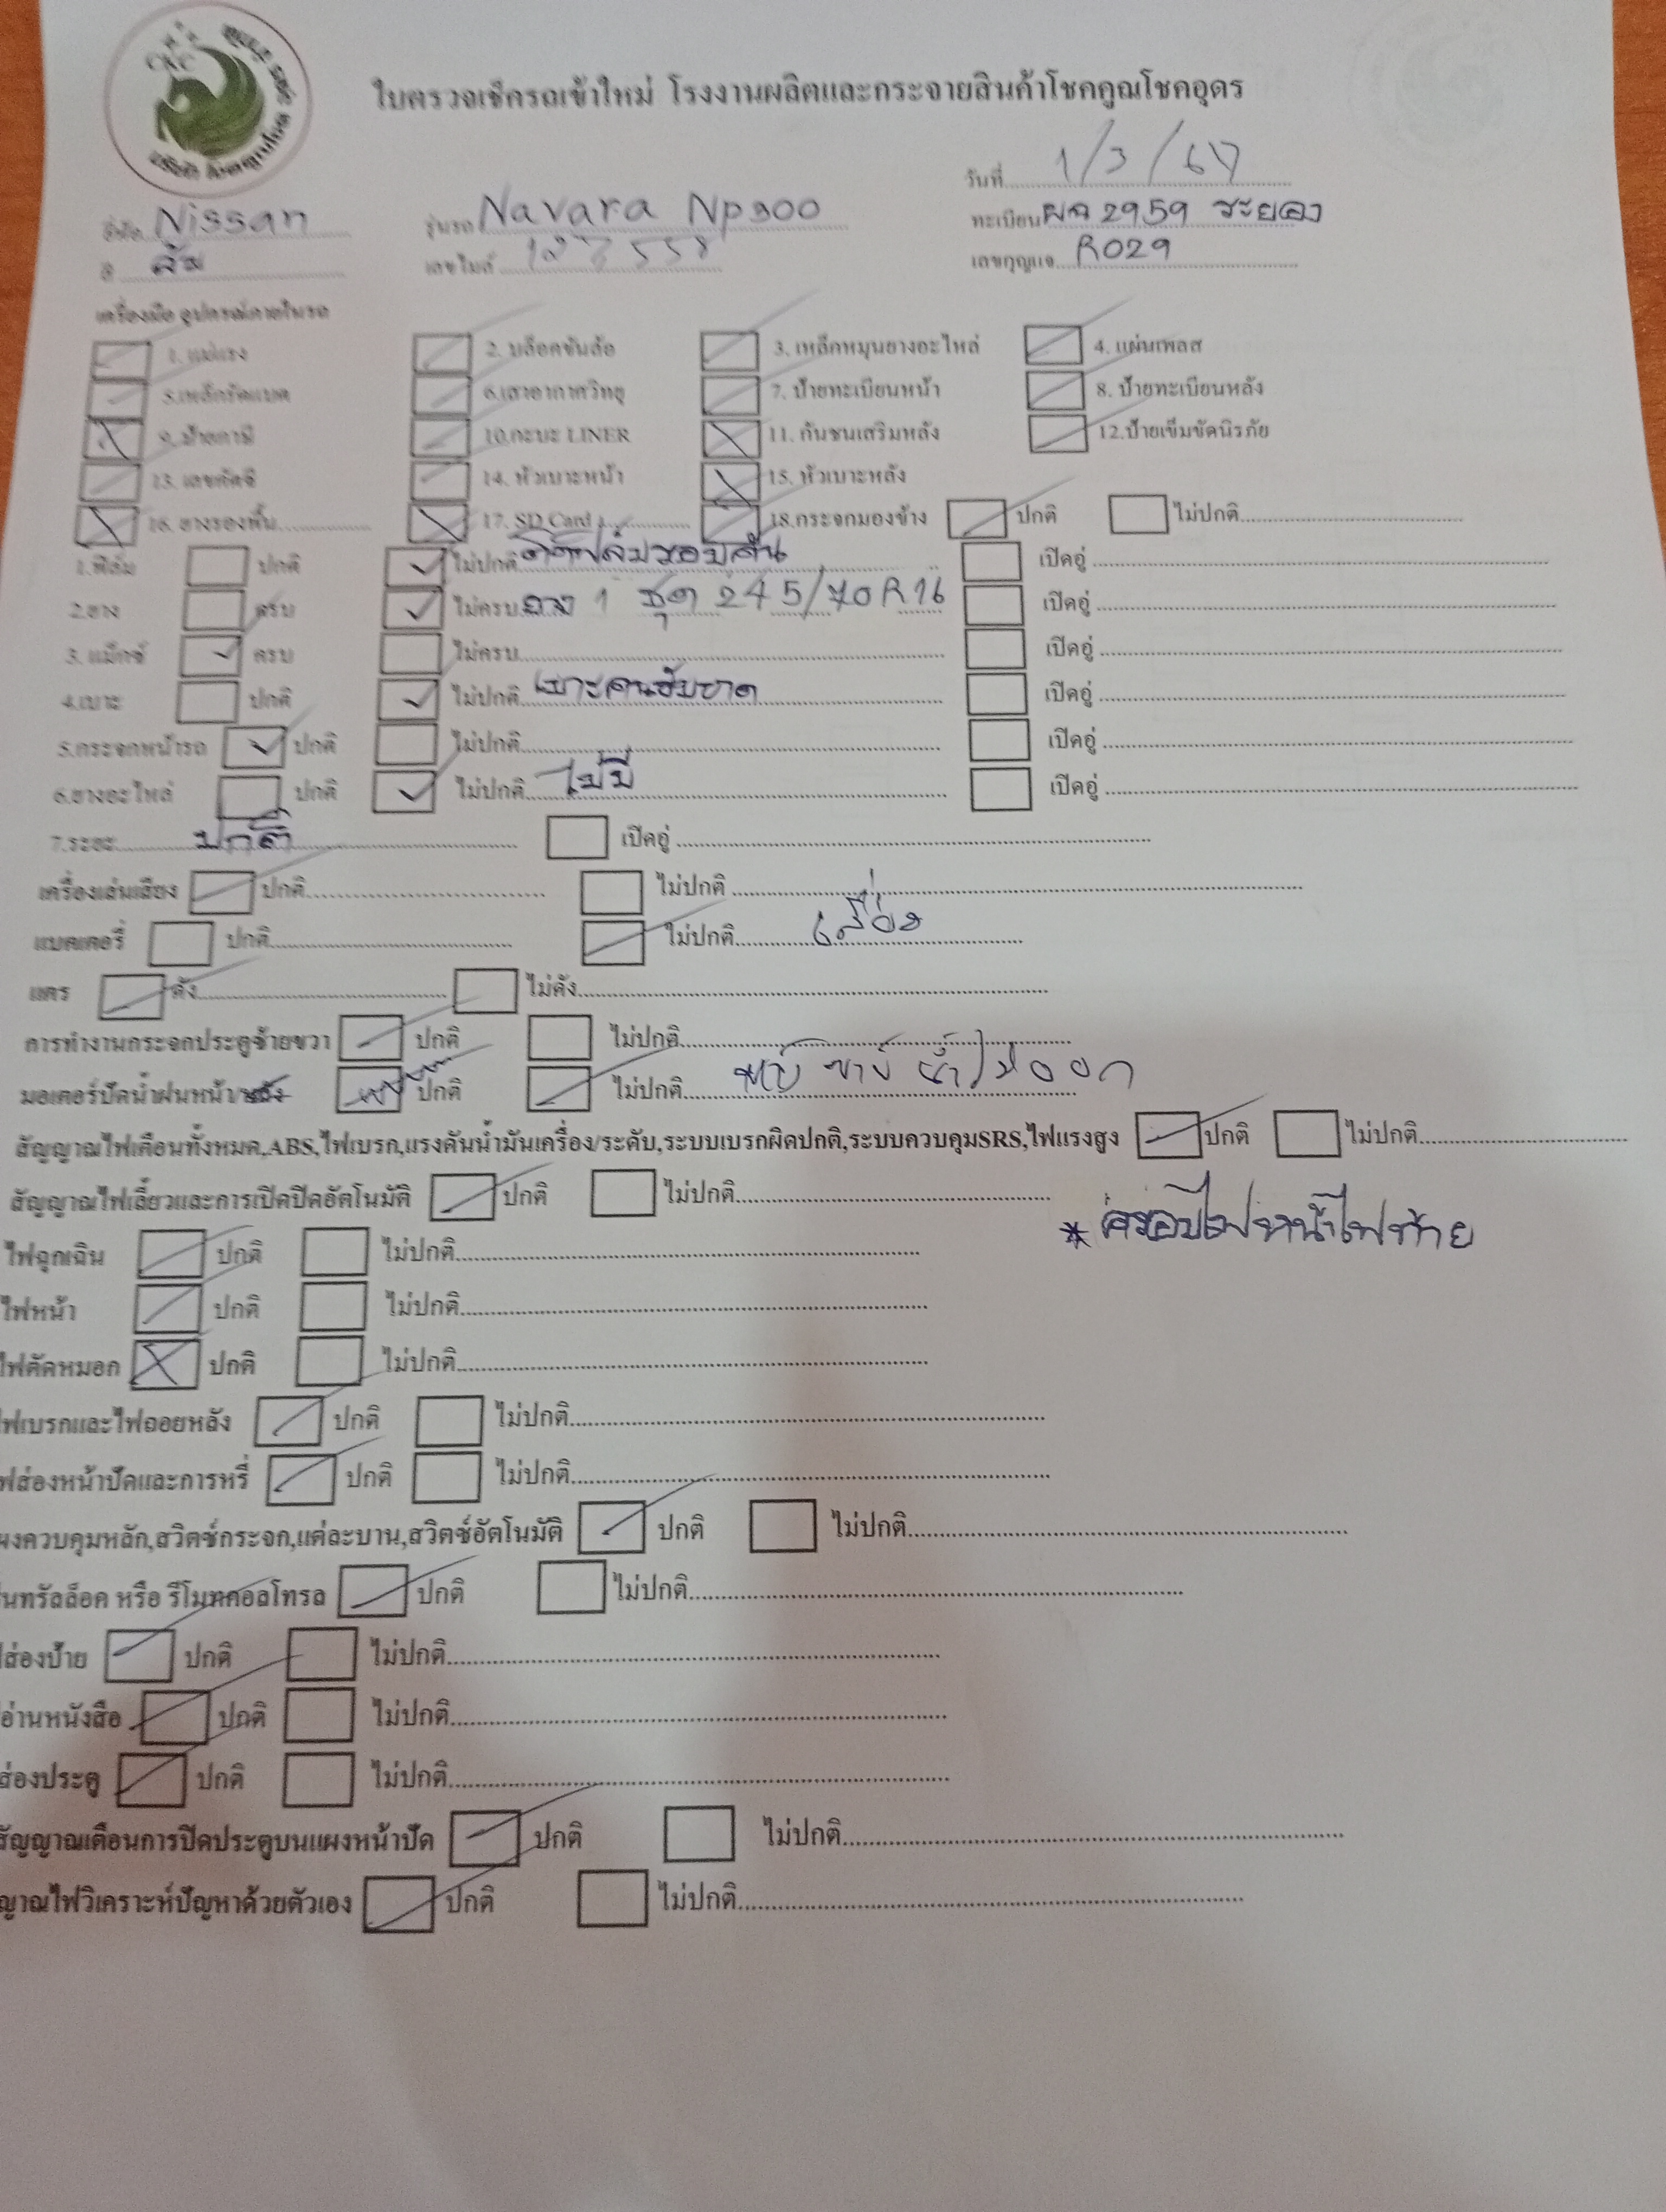 CKC
ใบตรวจเช็ครถเข้าใหม่ โรงงานผลิตและกระจายสินค้าโชคคูณโชคอุดร
วันที่ 1/3/67
ยี่ห้อ Nissan รุ่นรถ Navara Np300 ทะเบียน 2959 ระยอง
สี ส้ม เลขไมล์ เลขกุญแจ R029
เครื่องมือ อุปกรณ์ภายในรถ
1. แม่แรง 2. บล็อคขันล้อ 3. เหล็กหมุนยางอะไหล่ 4. แผ่นเพลส
5.เหล็กรัดแบต 6.เสาอากาศวิทยุ 7. ป้ายทะเบียนหน้า 8. ป้ายทะเบียนหลัง
9. ป้ายภาษี 10.กะบะ LINER 11. กันชนเสริมหลัง 12.ป้ายเข็มขัดนิรภัย
13. เลขคัดซี 14. หัวเบาะหน้า 15. หัวเบาะหลัง
16. ยางรองพื้น 17. SD Card 18.กระจกมองข้าง ปกติ ไม่ปกติ
1.ฟิล์ม ปกติ ไม่ปกติ ติดฟิล์มรอบคัน เปิดอู่
2.ยาง ครบ ไม่ครบ ยาง 1 ชุด 245/70R16 เปิดอู่
3. แม็กซ์ ครบ ไม่ครบ เปิดอู่
4.เบาะ ปกติ ไม่ปกติ เบาะคนขับขาด เปิดอู่
5.กระจกหน้ารถ ปกติ ไม่ปกติ เปิดอู่
6.ยางอะไหล่ ปกติ ไม่ปกติ ไม่มี เปิดอู่
7.ระยะ ปกติ เปิดอู่
เครื่องเล่นเสียง ปกติ ไม่ปกติ
แบตเตอรี่ ปกติ ไม่ปกติ เสื่อม
แตร ดัง ไม่ดัง
การทำงานกระจกประตูซ้ายขวา ปกติ ไม่ปกติ
มอเตอร์ปัดน้ำฝนหน้า/หลัง ปกติ ไม่ปกติ น้ำไม่ออก
สัญญาณไฟเตือนทั้งหมด,ABS,ไฟเบรก,แรงดันน้ำมันเครื่อง/ระดับ,ระบบเบรกผิดปกติ,ระบบควบคุมSRS,ไฟแรงสูง ปกติ ไม่ปกติ
สัญญาณไฟเลี้ยวและการเปิดปิดอัตโนมัติ ปกติ ไม่ปกติ
* ครอบไฟหน้าไฟท้าย
ไฟฉุกเฉิน ปกติ ไม่ปกติ
ไฟหน้า ปกติ ไม่ปกติ
ไฟตัดหมอก ปกติ ไม่ปกติ
ไฟเบรกและไฟถอยหลัง ปกติ ไม่ปกติ
ฟส่องหน้าปัดและการหรี่ ปกติ ไม่ปกติ
ผงควบคุมหลัก,สวิตซ์กระจก,แต่ละบาน,สวิตซ์อัตโนมัติ ปกติ ไม่ปกติ
ซ็นทรัลล็อค หรือ รีโมทคอลโทรล ปกติ ไม่ปกติ
ส่องป้าย ปกติ ไม่ปกติ
อ่านหนังสือ ปกติ ไม่ปกติ
ส่องประตู ปกติ ไม่ปกติ
สัญญาณเตือนการปิดประตูบนแผงหน้าปัด ปกติ ไม่ปกติ
ญาณไฟวิเคราะห์ปัญหาด้วยตัวเอง ปกติ ไม่ปกติ